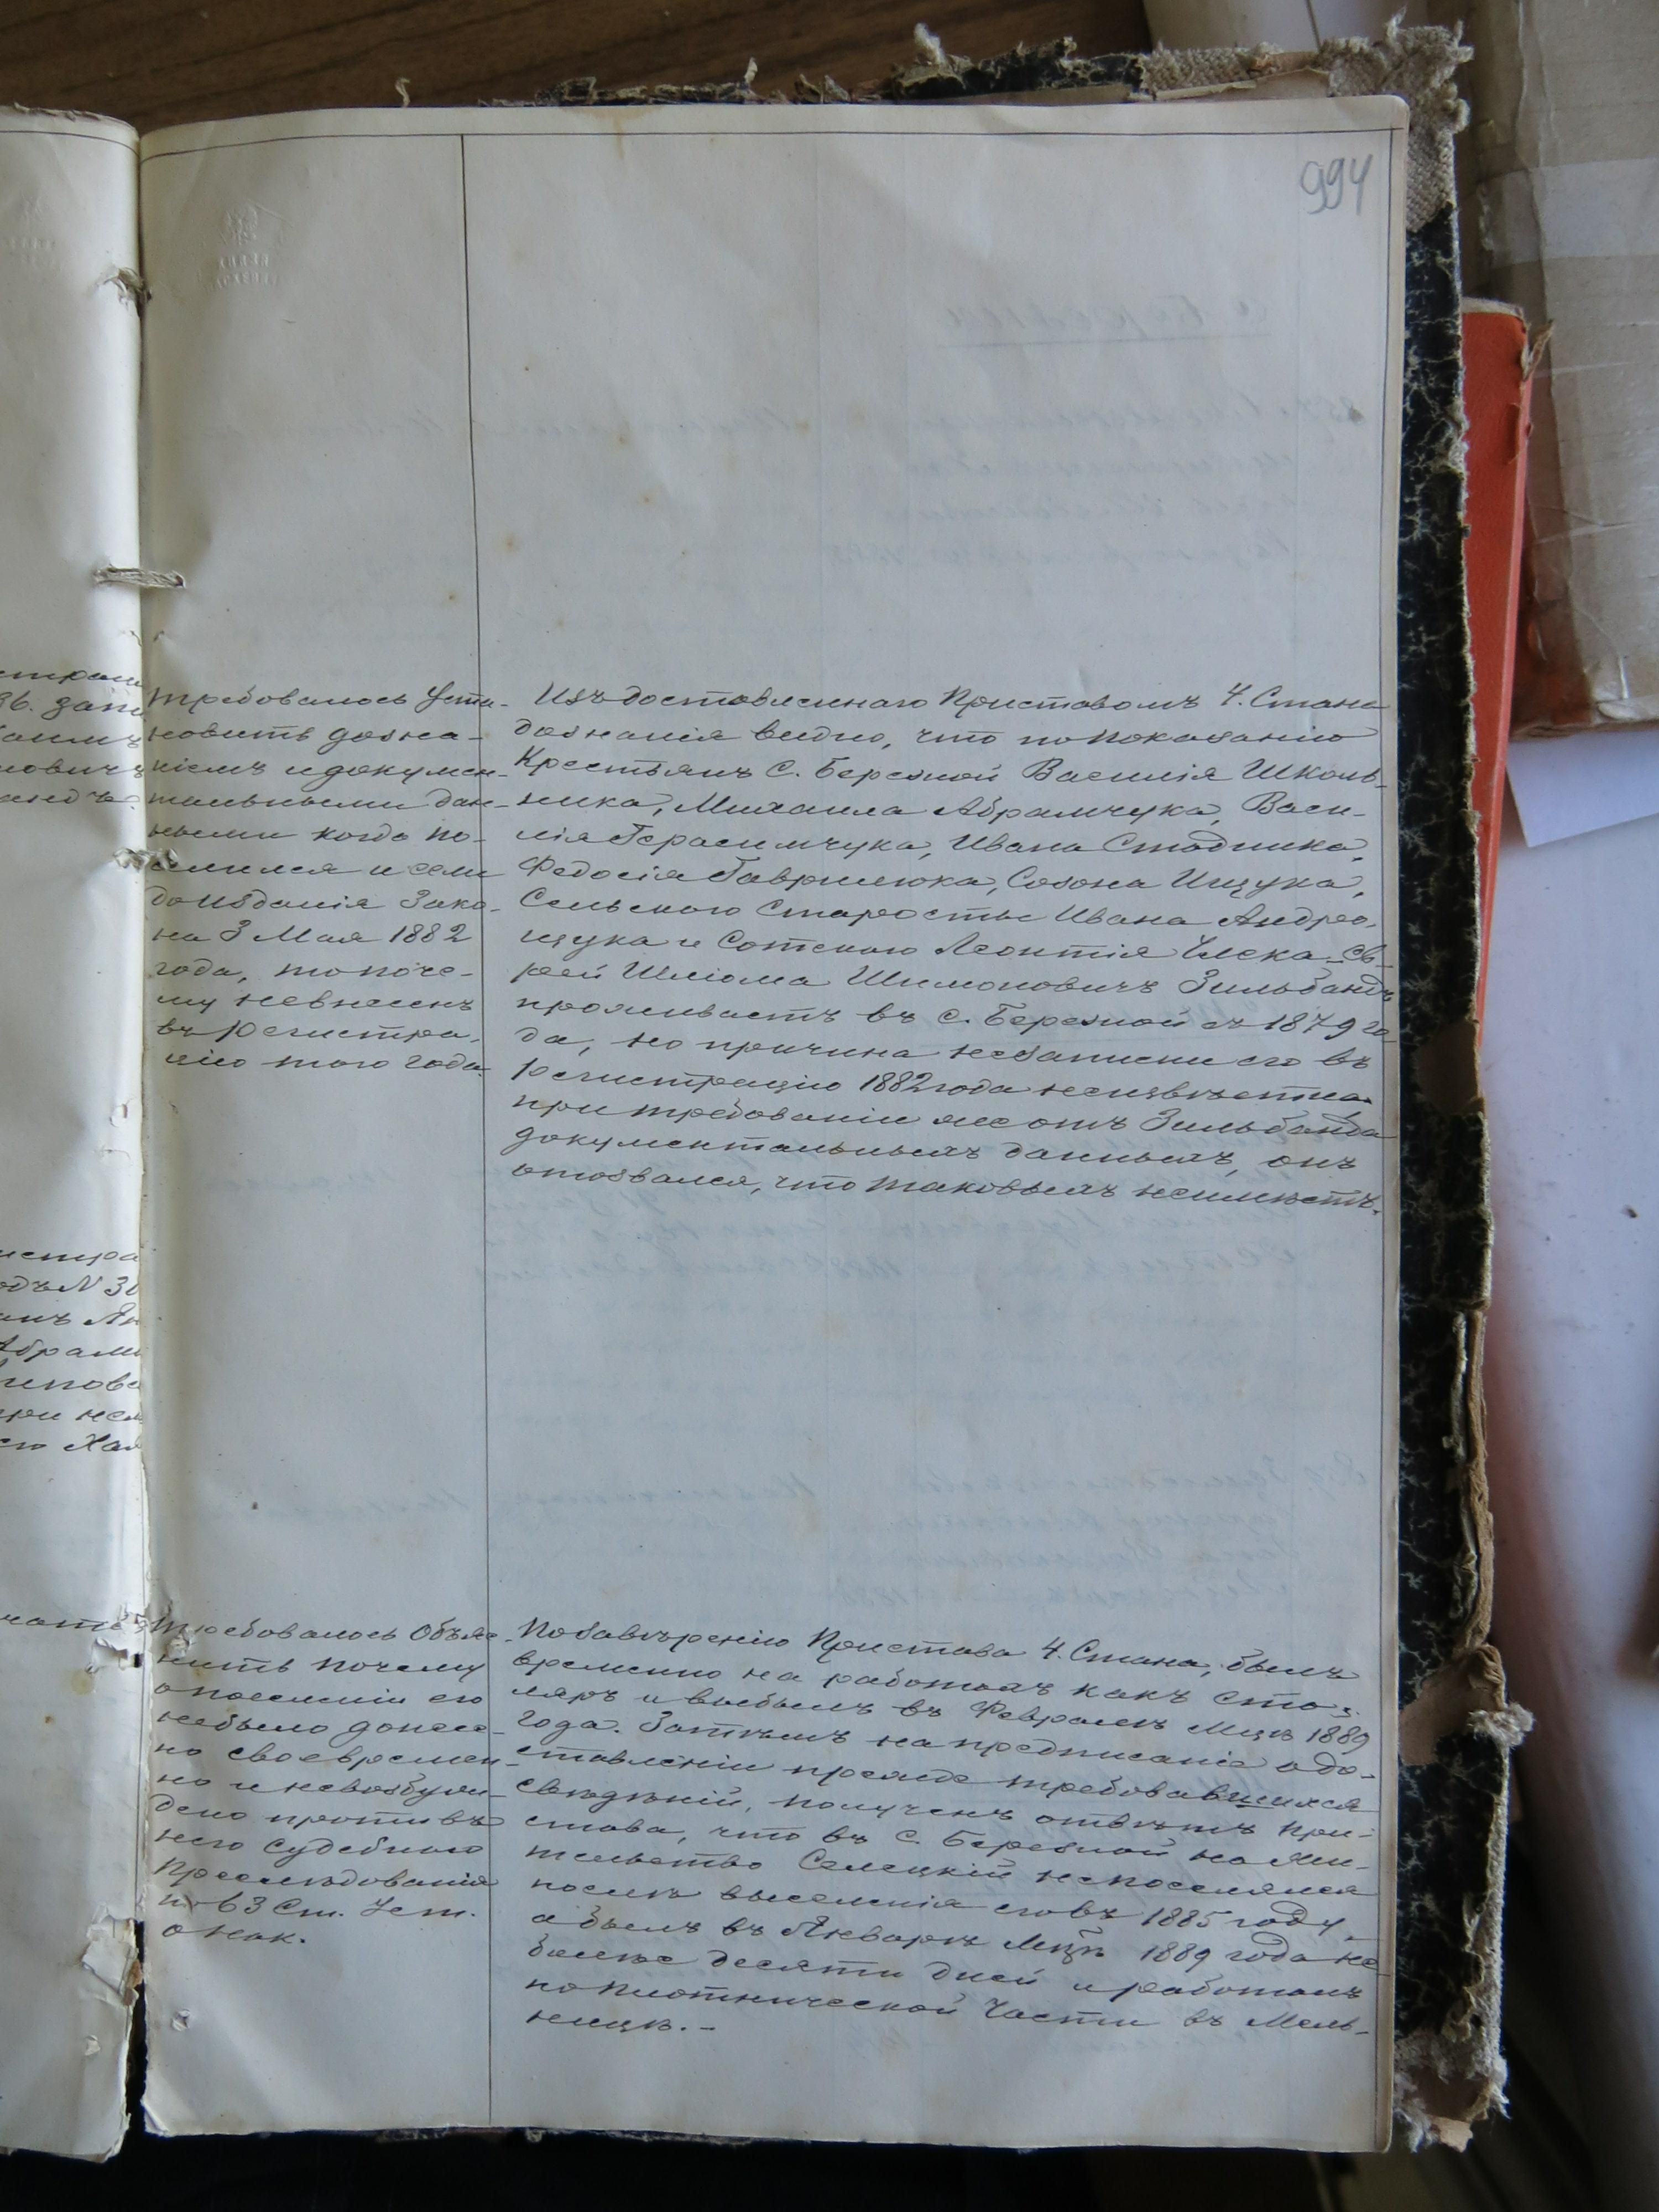 994
Требовалось Уста-
новить дозна-
ніемъ и докумен-
тальными дан-
ными когда по-
селился и если
до изданія Зако-
на 3 Мая 1882
года, то поче-
му невнесенъ
въ регистра-
цію того года.
Изъ доставленнаго Приставомъ 4. Стана
дознанія видно, что по показанію
Крестьянъ С. Березной Василія Школь-
ника, Михаила Абрамчука, Васи-
лія Герасимчука, Ивана Стадника,
Федосія Гаврилюка, Созона Ищука,
Сельскаго Старосты Ивана Андрео-
щука и Сотскаго Леонтія Ев-
рей Шліома Шимоновичъ Зильбандъ
проживаетъ въ с. Березной съ 1879 го
да, но причина незаписки его въ
регистрацію 1882 года неизвѣстна.
при требованіи же отъ Зильбанда
документальныхъ данныхъ, онъ
отозвался, что таковыхъ неимѣетъ.
Требовалось Объяс-
нить почему
о поселеніи его
небыло донесе-
но своевремен-
но и невозбуж-
дено противъ
него судебнаго
преслѣдованія
по 63 Ст. Уст.
о нак.
По завѣренію Пристава 4. Стана, былъ
временно на работахъ какъ Сто-
ляръ и выбылъ въ Февралѣ Мцѣ 1889
года. Затѣмъ на предписаніе о до-
ставленіи прежде требовавшихся
свѣдѣній, полученъ отвѣтъ При-
става, что въ С. Березной на Жи-
тельство Селецкій непоселялся
послѣ выселенія его въ 1885 году,
а былъ въ Январѣ Мцѣ 1889 года не
болѣе десяти дней и работалъ
по плотнической части въ Мель-
ницѣ.-